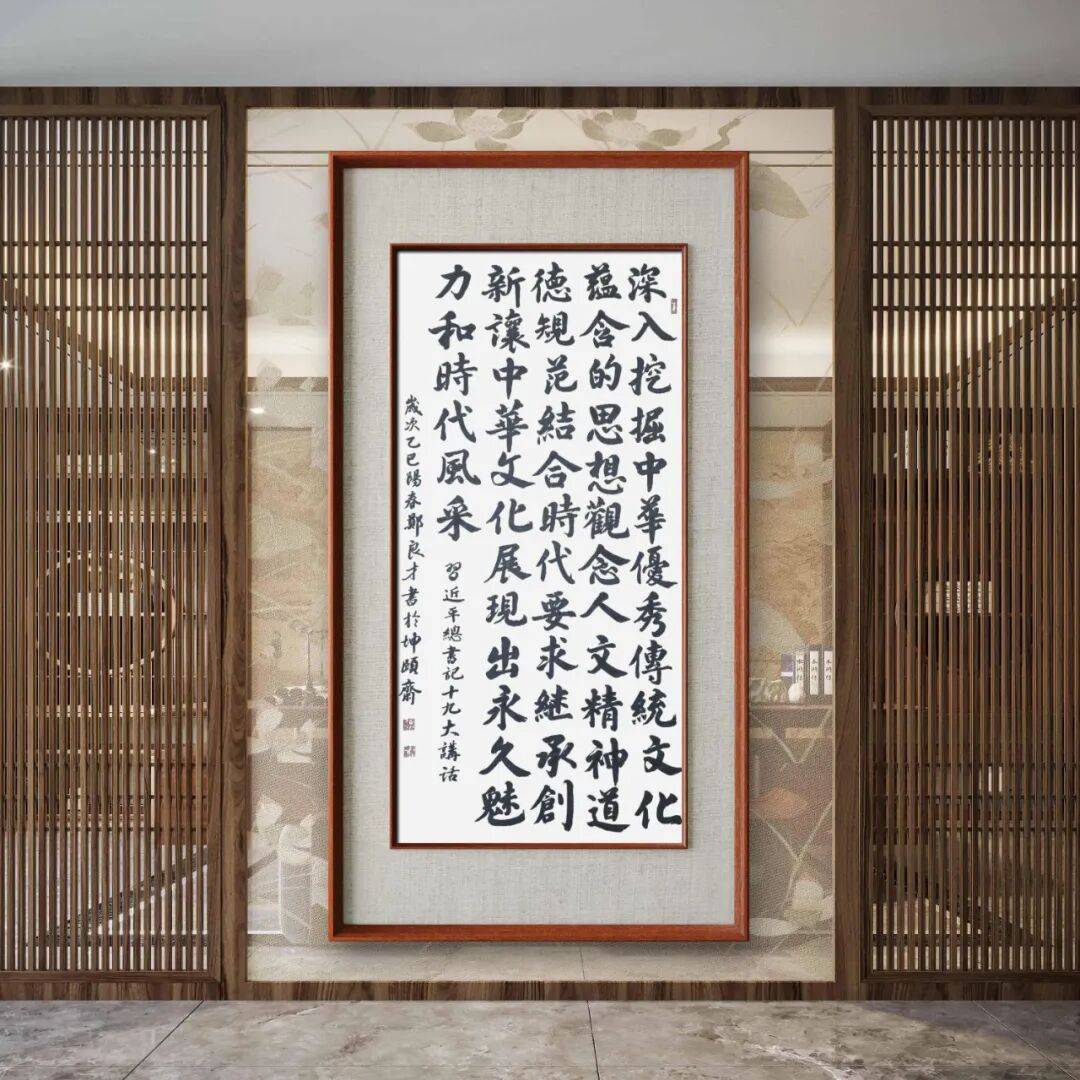 深入挖掘中華優秀傳統文化
蘊含的思想觀念人文精神道
德規范結合時代要求継承創
新讓中華文化展現出永久魅
力和時代風采
習近平總書記十九大講話
歲次乙巳陽春鄭良才書於坤頤齋